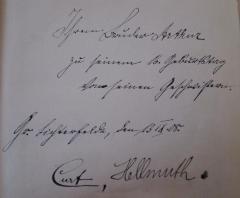 Ihrem Bruder Arthur
zu seinem 16. Geburtstag
von seinen Geschwistern.
Gr. Lichterfelde, den 15 IX 05.
Curt, Hellmuth.